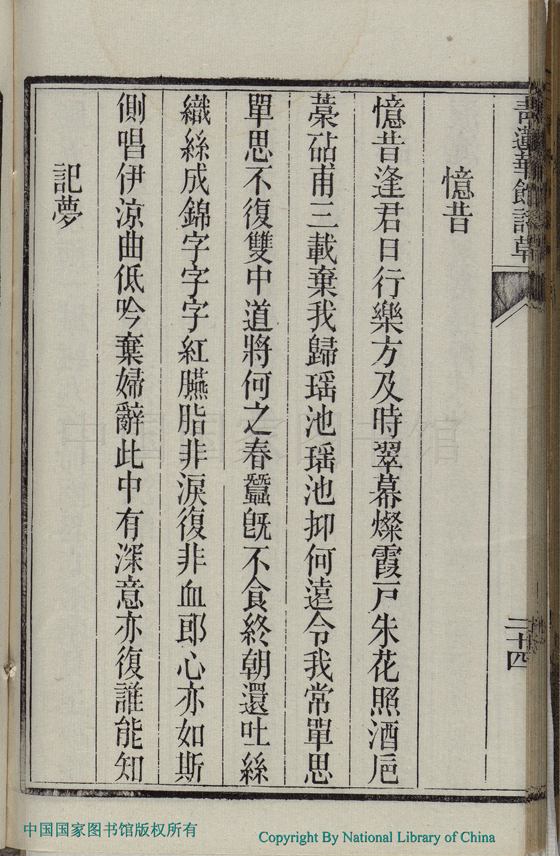 憶昔
憶昔逢君日行樂方及時翠幕燦霞戸朱花照酒巵
藁砧甫三載棄我歸瑶池瑶池抑何遠令我常單思
單思不復雙中道將何之春蠶旣不食終朝還吐絲
織絲成錦字字字紅臙脂非淚復非血郎心亦如斯
側唱伊涼曲低吟棄婦辭此中有深意亦復誰能知
記夢
二十四
中国国家图书馆版权所有
Copyright By National Library of China